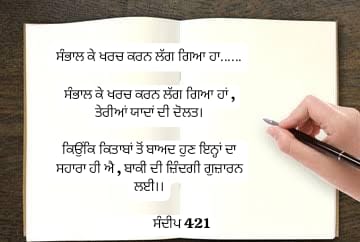 ਸੰਭਾਲ ਕੇ ਖਰਚ ਕਰਨ ਲੱਗ ਗਿਆ ਹਾ......
ਸੰਭਾਲ ਕੇ ਖਰਚ ਕਰਨ ਲੱਗ ਗਿਆ ਹਾਂ ,
ਤੇਰੀਆਂ ਯਾਦਾਂ ਦੀ ਦੌਲਤ।
ਕਿਉਂਕਿ ਕਿਤਾਬਾਂ ਤੋਂ ਬਾਅਦ ਹੁਣ ਇਨ੍ਹਾਂ ਦਾ
ਸਹਾਰਾ ਹੀ ਐ , ਬਾਕੀ ਦੀ ਜ਼ਿੰਦਗੀ ਗੁਜ਼ਾਰਨ
ਲਈ।।
ਸੰਦੀਪ 421